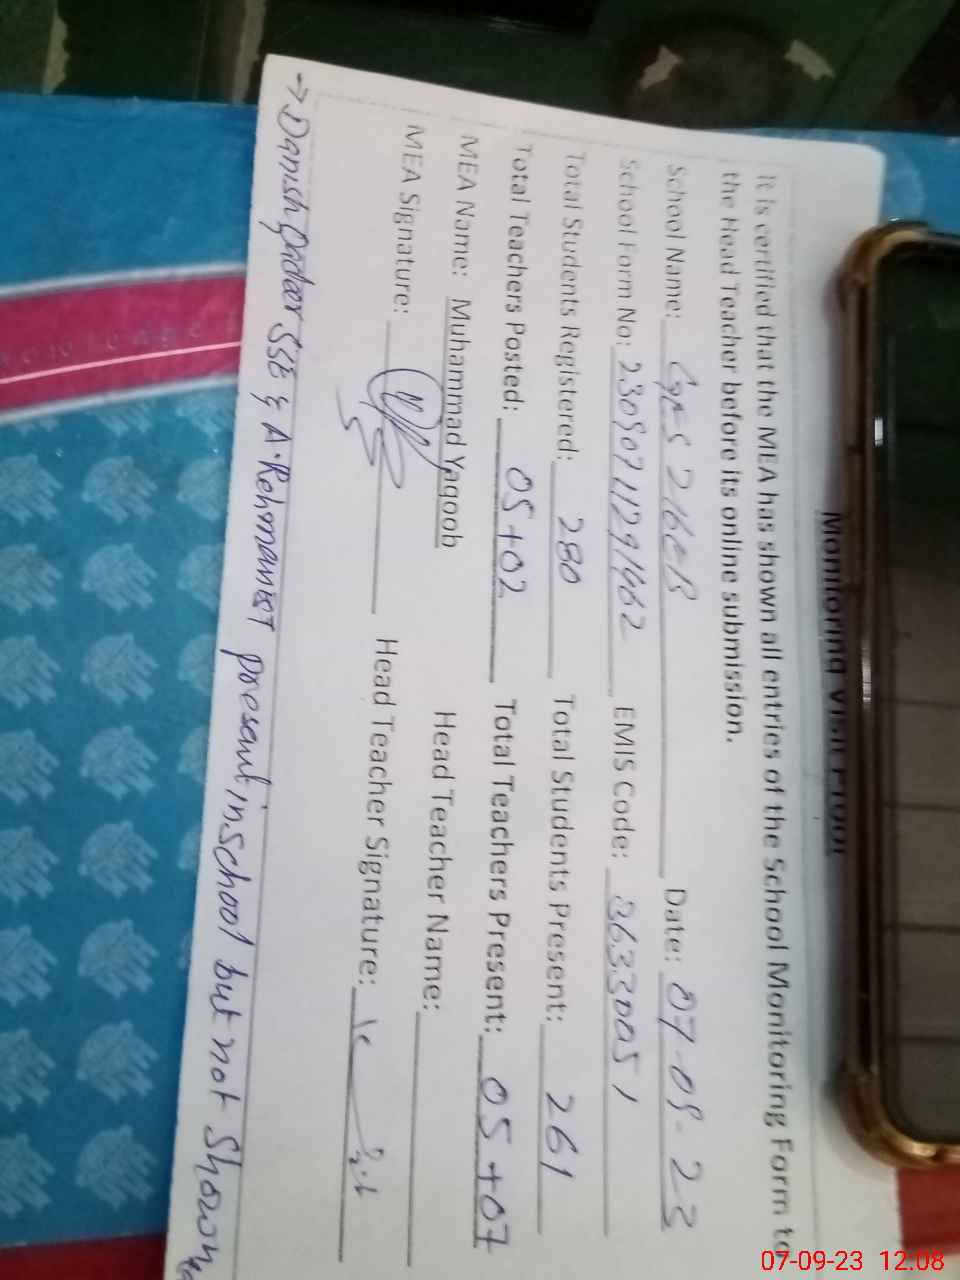 Monitoring Visit Proof
It is certified that the MEA has shown all entries of the School Monitoring Form to
the Head Teacher before its online submission.
School Name: GES 216EB Date: 07-09-23
School Form No: 23090711291462 EMIS Code: 36330051
Total Students Registered: 280 Total Students Present: 261
Total Teachers Posted: 05+02 Total Teachers Present: 05+07
MEA Name: Muhammad Yaqoob Head Teacher Name:
MEA Signature: Head Teacher Signature:
→ Danish Qadeer SSE & A. Rehman present in school but not Shown
07-09-23 12:08